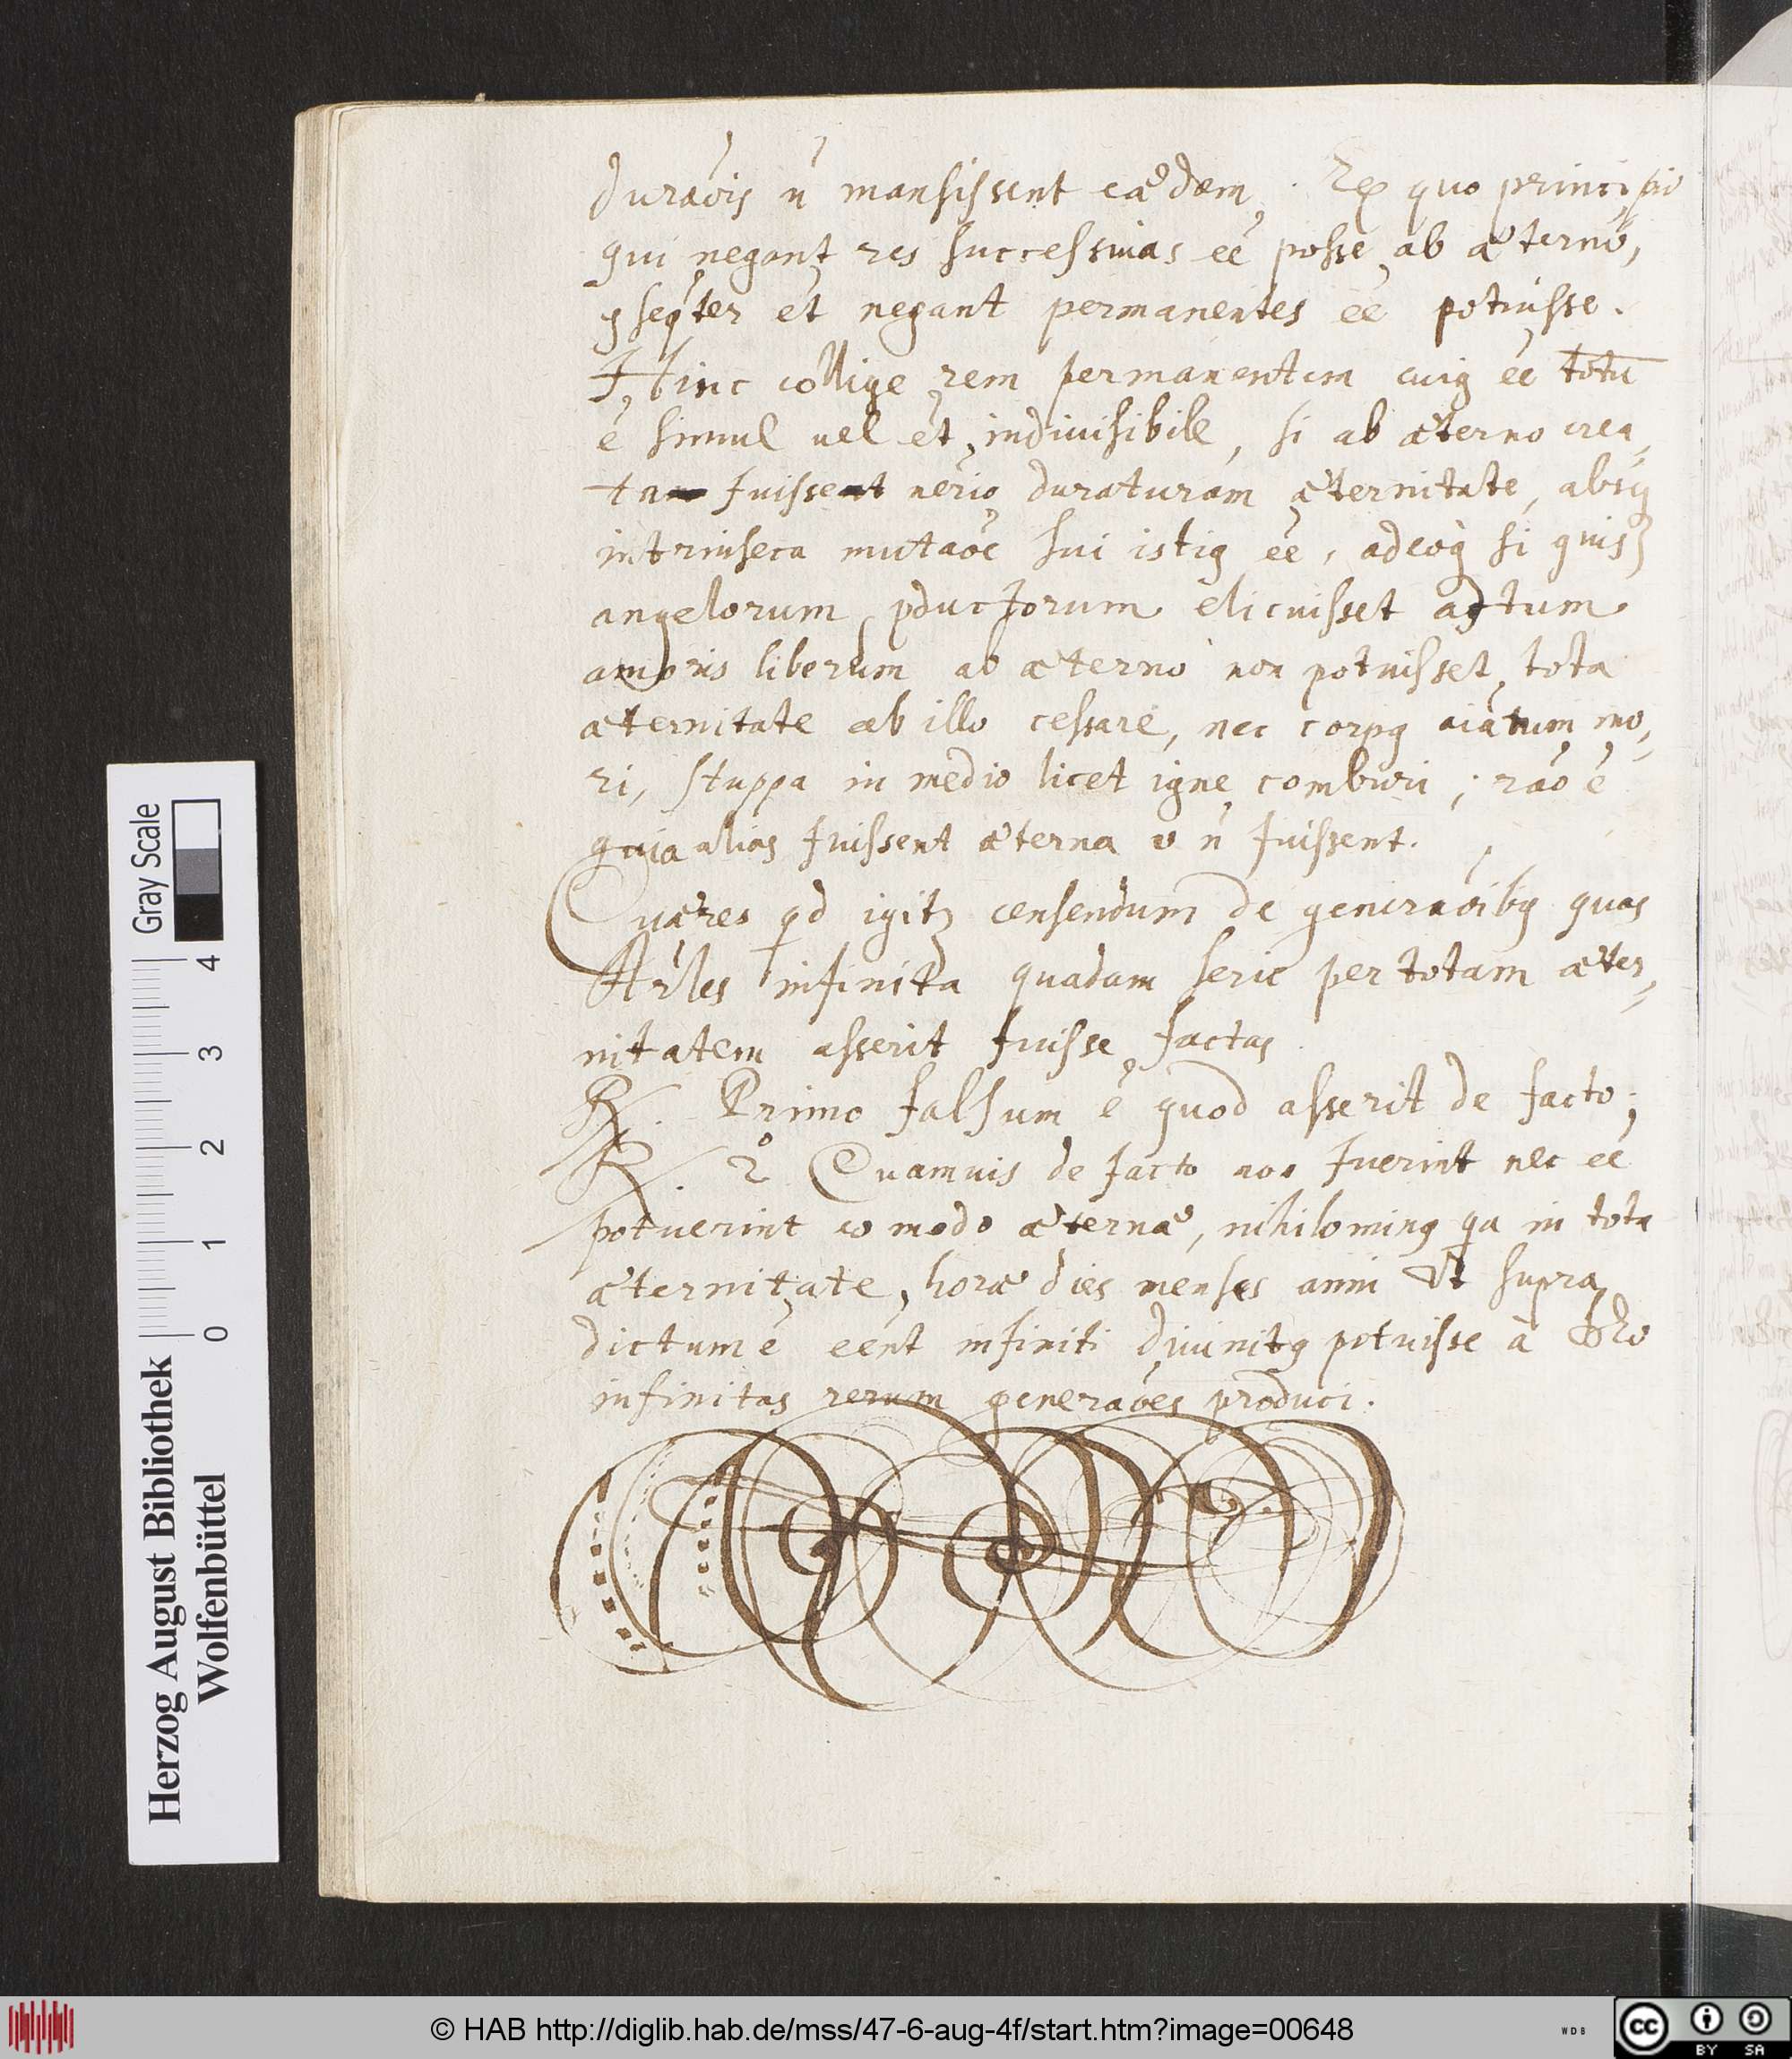 duraōis n̄ mansissent eædem. Ex quo principio
qui negant res successiuas eē posse ab æterno,
ꝯseq̄ter et negant permanentes eē potuisse.
Hinc collige rem permanentem cuiꝰ eē totū
ē simul uel et indiuisibile, si ab æterno crea„
ta fuisset nēriò duraturam æternitate, absq̨
intrinseca mutaōe sui istiꝰ eē, adeoq̀ si quisꝫ
angelorum pductorum elicuisset actum
amoris liberum ab æterno non potuisset tota
æternitate ab illo cessare, nec corpꝰ aīatum mo„
ri, stuppa in medio licet igne comburi; rāo ē
quia alias fuissent æterna et n̄ fuissent.
Quæres qd igitꝫ censendum de generaōibꝰ quas
Arles infinita quadam serie per totam æter„
nitatem asserit fuisse factas.
R. Primo falsum ē quod asserit de facto;
R. 2° Quamuis de facto non fuerint nec eē
potuerint eo modo æternæ, nihilominꝰ qa in tota
æternitate, horæ dies menses anni ut supra
dictum ē eēnt infiniti diuinitꝰ potuisse à Deo
infinitas rerum generaōes produci.
Gray Scale
0 1 2 3 4
Herzog August Bibliothek
Wolfenbüttel
© HAB http://diglib.hab.de/mss/47-6-aug-4f/start.htm?image=00648
WDB
cc BY SA